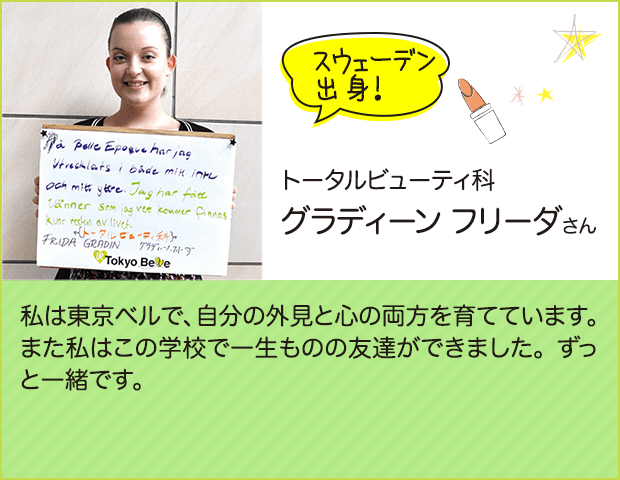 スウェーデン
出身!
På Belle Epoque har jag
utvecklats i både mitt inre
och mitt yttre. Jag har fått
vänner som jag vet kommer finnas
kvar resten av livet.
トータルビューティ科
FRIDA GRADIN グラディーン・フリーダ
Tokyo Belle
トータルビューティ科
グラディーン フリーダさん
私は東京ベルで、自分の外見と心の両方を育てています。
また私はこの学校で一生ものの友達ができました。ずっ
と一緒です。